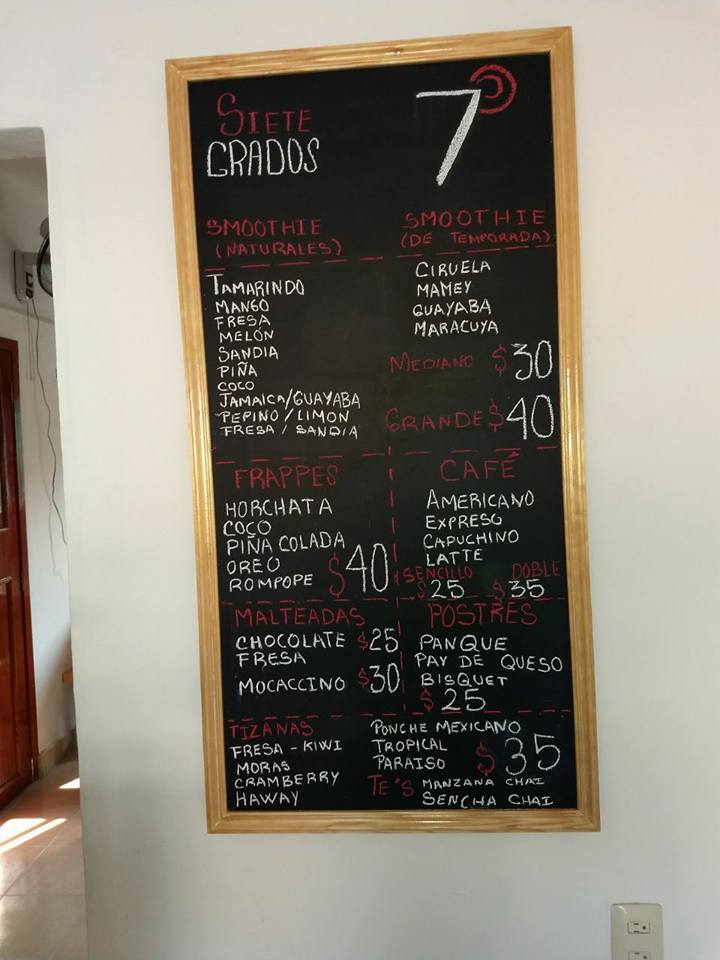 SIETE
GRADOS
7°
SMOOTHIE
(NATURALES)
TAMARINDO
MANGO
FRESA
MELÓN
SANDIA
PIÑA
COCO
JAMAICA/GUAYABA
PEPINO/LIMON
FRESA/SANDIA
SMOOTHIE
(DE TEMPORADA)
CIRUELA
MAMEY
GUAYABA
MARACUYA
MEDIANO $30
GRANDE $40
FRAPPES
HORCHATA
COCO
PIÑA COLADA
OREO
ROMPOPE $40
CAFÉ
AMERICANO
EXPRESO
CAPUCHINO
LATTE
SENCILLO DOBLE
$25 $35
MALTEADAS
CHOCOLATE $25
FRESA
MOCACCINO $30
POSTRES
PANQUE
PAY DE QUESO
BISQUET
$25
TIZANAS
FRESA-KIWI
MORAS
CRAMBERRY
HAWAY
PONCHE MEXICANO
TROPICAL
PARAISO $35
TE'S MANZANA CHAI
SENCHA CHAI